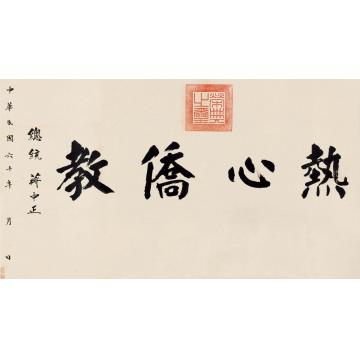 榮典之璽
熱心僑教
總統 蔣中正
中華民國六十年 月 日